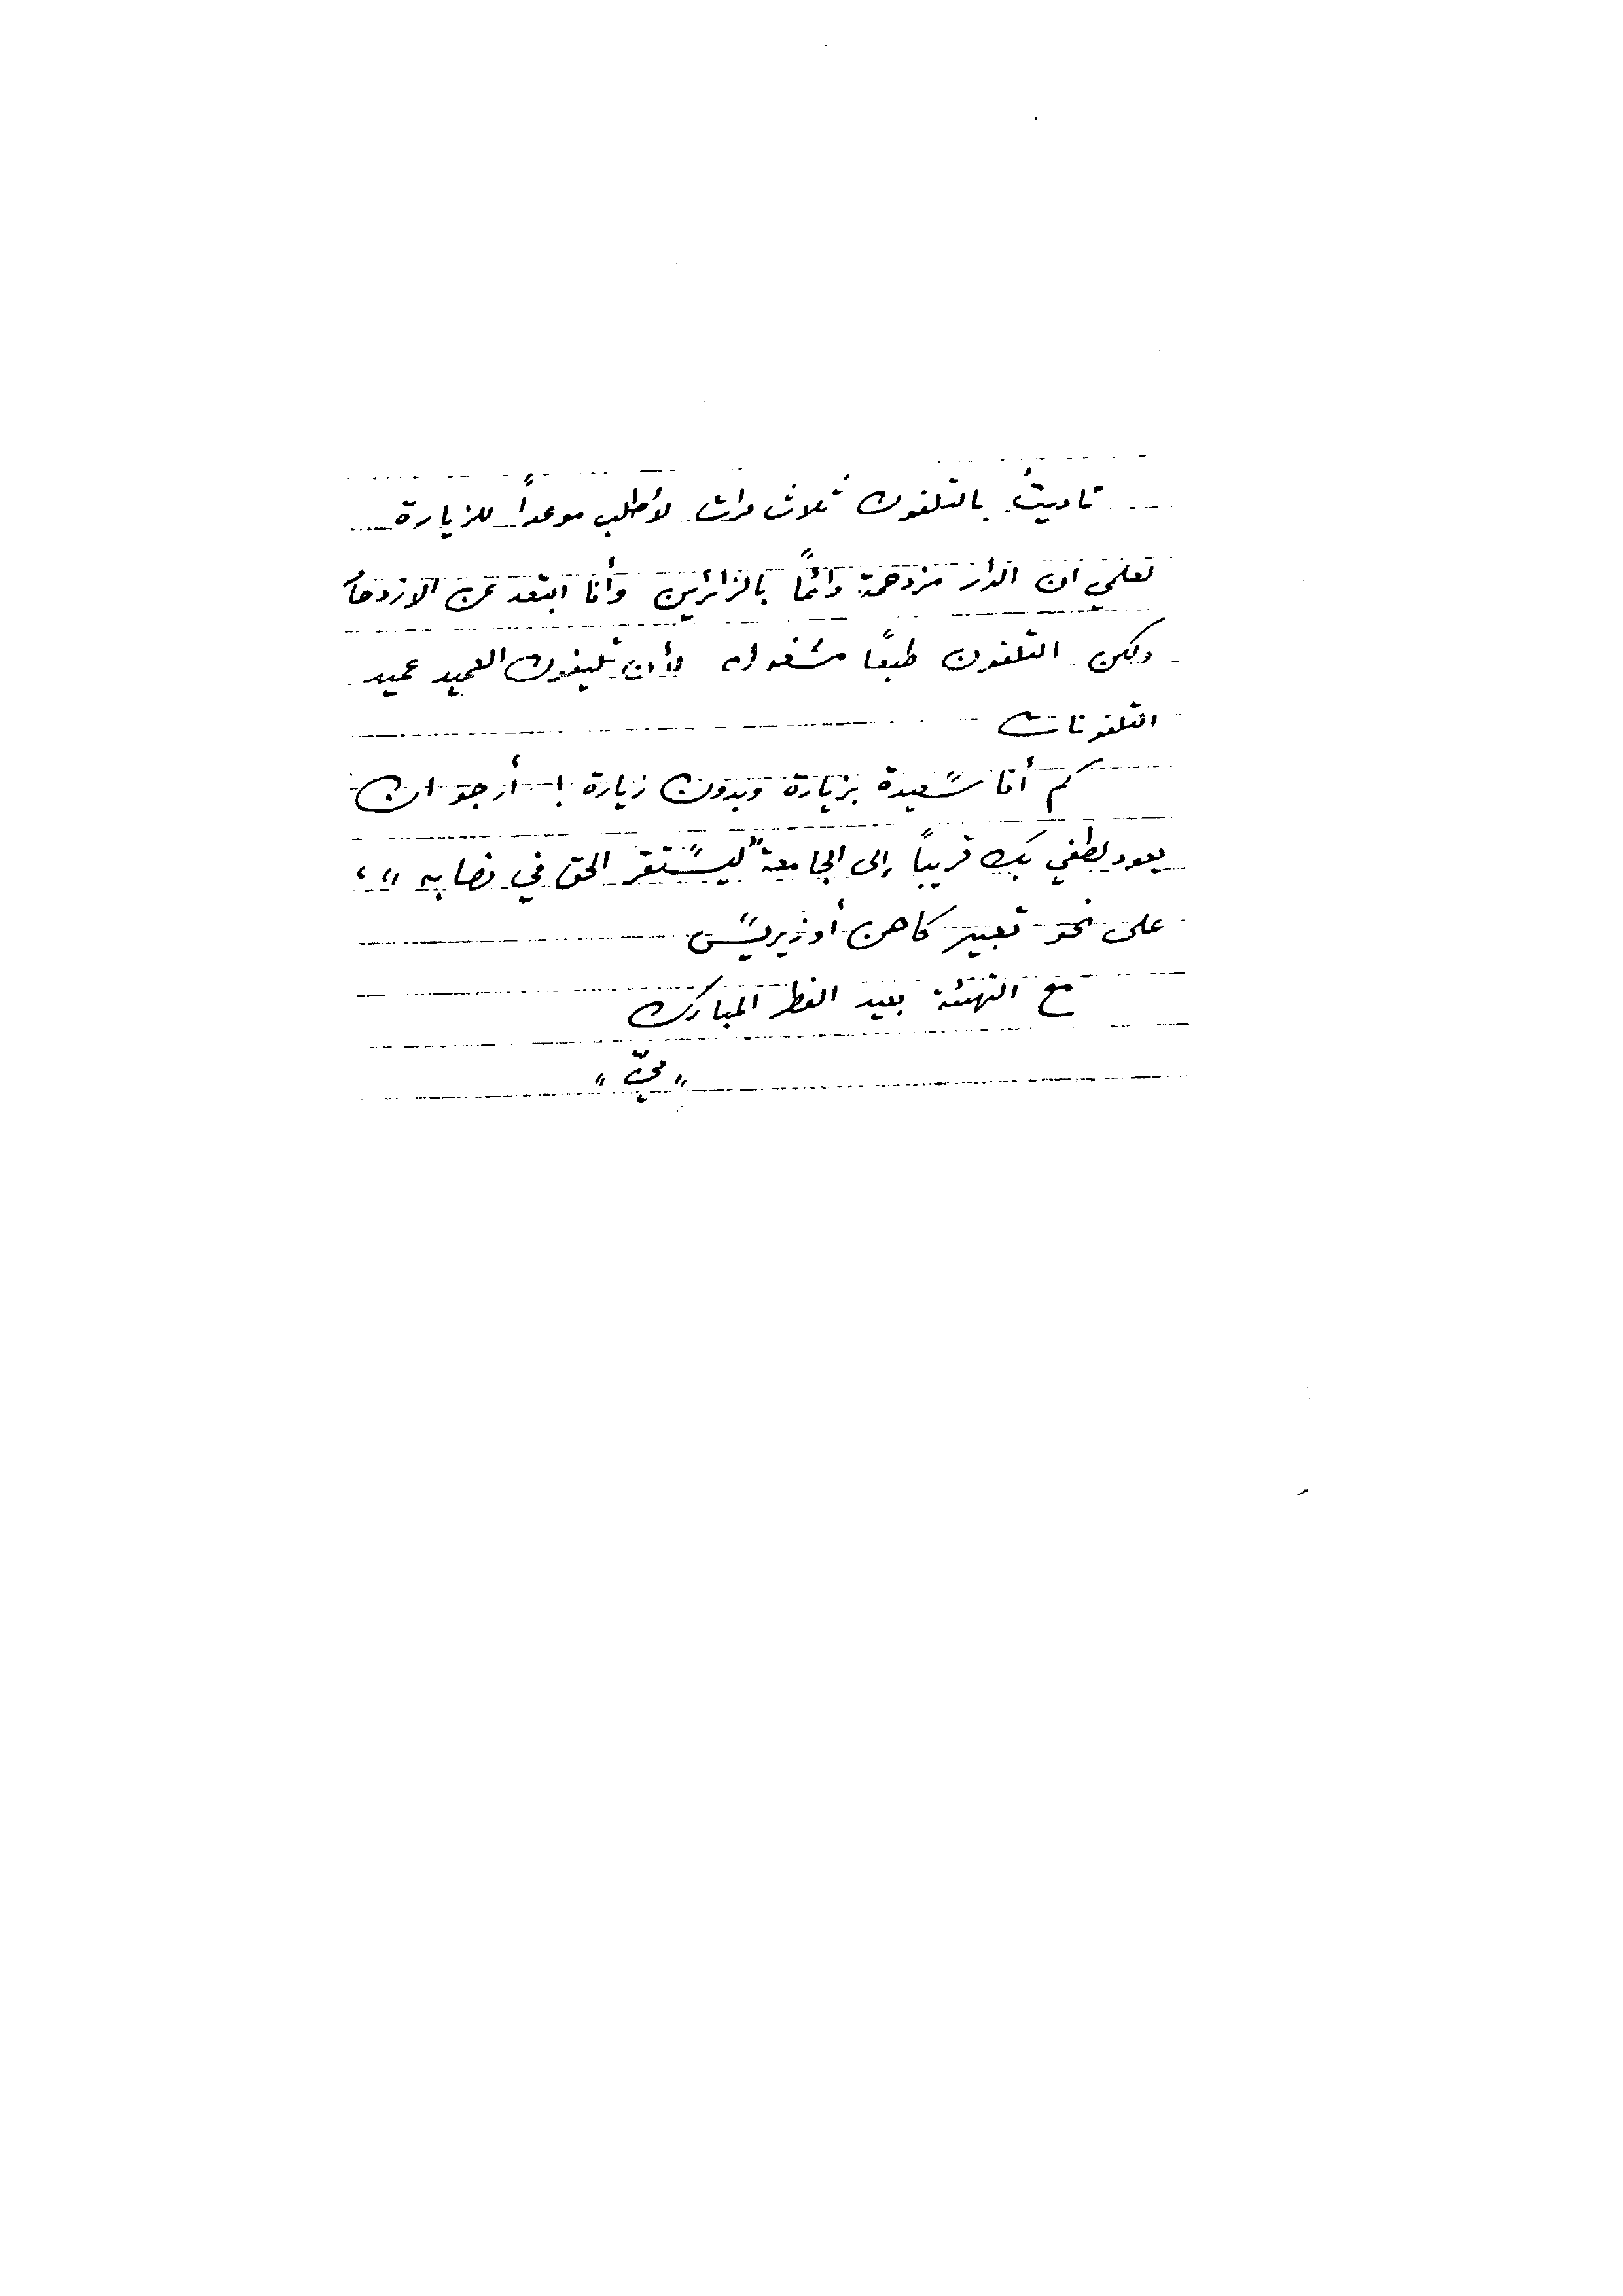 ناديتُ بالتلفون ثلاث مرات لأطلب موعداً للزيارة
لعلمي ان الدار مزدحمة دائماً بالزائرين وأنا ابتعد عن الازدحام
ولكن التلفون طبعاً مشغول لأن تليفون العميد عميد
التلفونات
كم أنا سعيدة بزيارة وبدون زيارة ! أرجو ان
يعود لطفي بك قريباً إلى الجامعة "ليستقر الحق في نصابه" ،
على نحو تعبير كاهن أوزيريس
مع التهنئة بعيد الفطر المبارك
"ميّ"